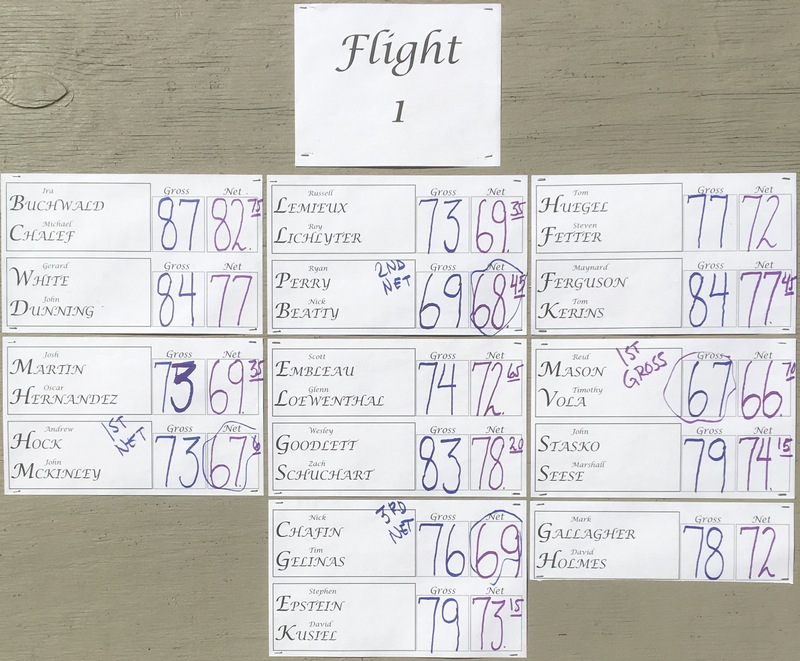 Flight
1
Ira
BUCHWALD
Michael
CHALEF
Gross Net
87 82.75
Gerard
WHITE
John
DUNNING
84 77
Russell
LEMIEUX
Roy
LICHLYTER
Gross Net
73 69.35
Ryan
PERRY
Nick
BEATTY
2ND
NET
69 68.45
Tom
HUEGEL
Steven
FETTER
Gross Net
77 72
Maynard
FERGUSON
Tom
KERINS
84 77.45
Josh
MARTIN
Oscar
HERNANDEZ
Gross Net
73 69.35
Andrew
HOCK
John
MCKINLEY
1ST
NET
73 67.
Scott
EMBLEAU
Glenn
LOEWENTHAL
Gross Net
74 72.65
Wesley
GOODLETT
Zach
SCHUCHART
83 78.20
Reid
MASON
Timothy
VOLA
1ST
GROSS
Gross Net
67 66.70
John
STASKO
Marshall
SEESE
79 74.15
Nick
CHAFIN
Tim
GELINAS
3RD
NET
Gross Net
76 69
Stephen
EPSTEIN
David
KUSIEL
79 73.15
Mark
GALLAGHER
David
HOLMES
Gross Net
78 72